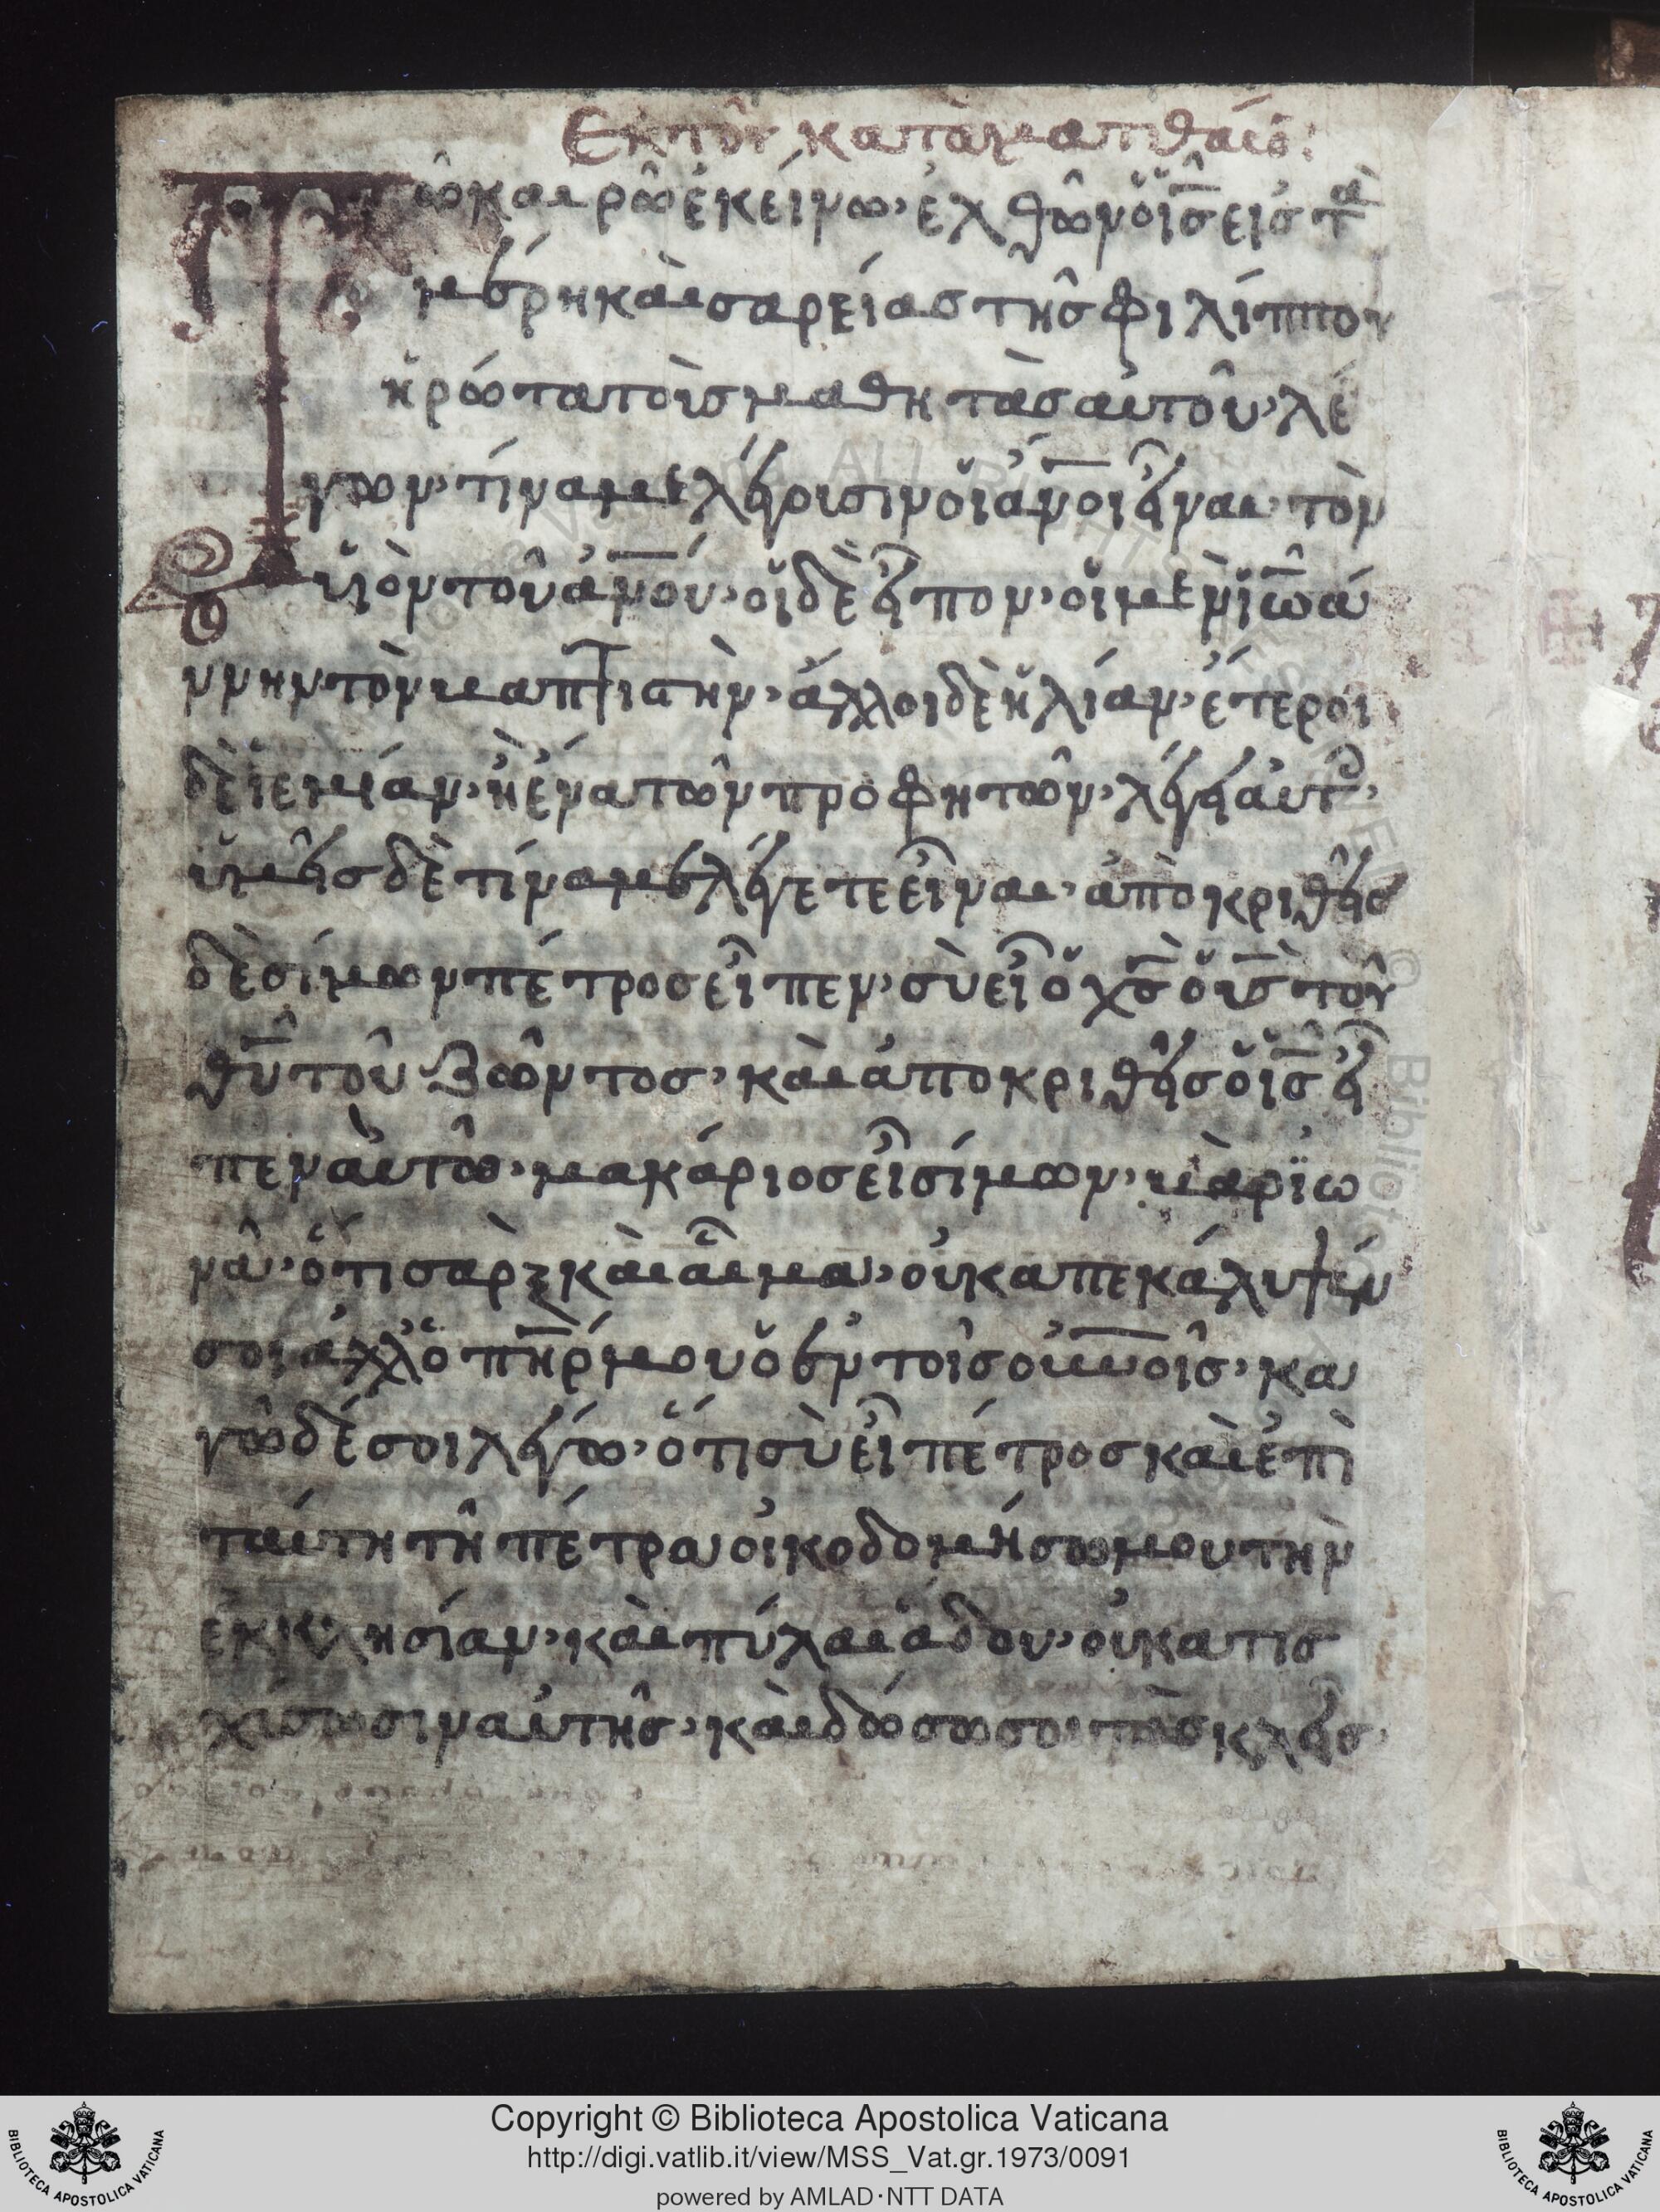 Ἐκ τοῦ κατὰ Ματθαῖον:
Τῶ καιρῶ ἐκείνω· ἐλθῶν ὁ ις εἰς τὰ
μέρη καισαρείας τῆς φιλίππου
ἠρώτα τοὺς μαθητὰς αὐτοῦ· λέ
γων· τίνα με λέγουσιν οἱ ἀνοι εἶναι· τὸν
υἱὸν τοῦ ἀνου· οἱ δὲ εἶπον· οἱ μὲν ϊωά
ννην τὸν βαπτιστὴν· ἄλλοι δὲ ἠλίαν· ἕτεροι
δὲ ἱερεμίαν· ἢ ἕνα τῶν προφητῶν· λέγει αὐτοῖς·
ὑμεῖς δὲ τίνα με λέγετε εἶναι· ἀποκριθεὶς
δὲ σίμων πέτρος εἶπεν· σὺ εἶ ὁ χς ὁ υς τοῦ
θυ τοῦ ζῶντος· καὶ ἀποκριθεὶς ὁ ις εἶ
πεν αὐτῶ· μακάριος εἶ σίμων· βὰρ ϊω
νᾶ· ὅτι σὰρξ καὶ αἷμα· οὐκ απεκάλυψέν
σοι ἀλλ' ὁ πηρ μου ὁ ἐν τοῖς οὐνοις· κα
γὼ δέ σοι λέγω· ὅτι σὺ εἶ πέτρος καὶ ἐπὶ
ταύτη τῆ πέτρα οἰκοδομήσω μου τὴν
ἐκκλησίαν· καὶ πύλαι ἅδου· οὐ κατισ
χύσωσιν αὐτῆς· καὶ δώσω σοι τὰς κλεῖς
Copyright © Biblioteca Apostolica Vaticana
http://digi.vatlib.it/view/MSS_Vat.gr.1973/0091
powered by AMLAD·NTT DATA
BIBLIOTECA APOSTOLICA VATICANA
BIBLIOTECA APOSTOLICA VATICANA